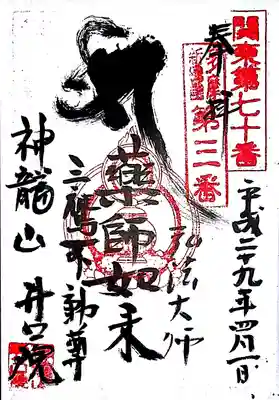 関東第七十番
奉拝
第三番
平成二十九年四月一日
弘法大師
薬師如来
三鷹不動尊
神龍山 井口院